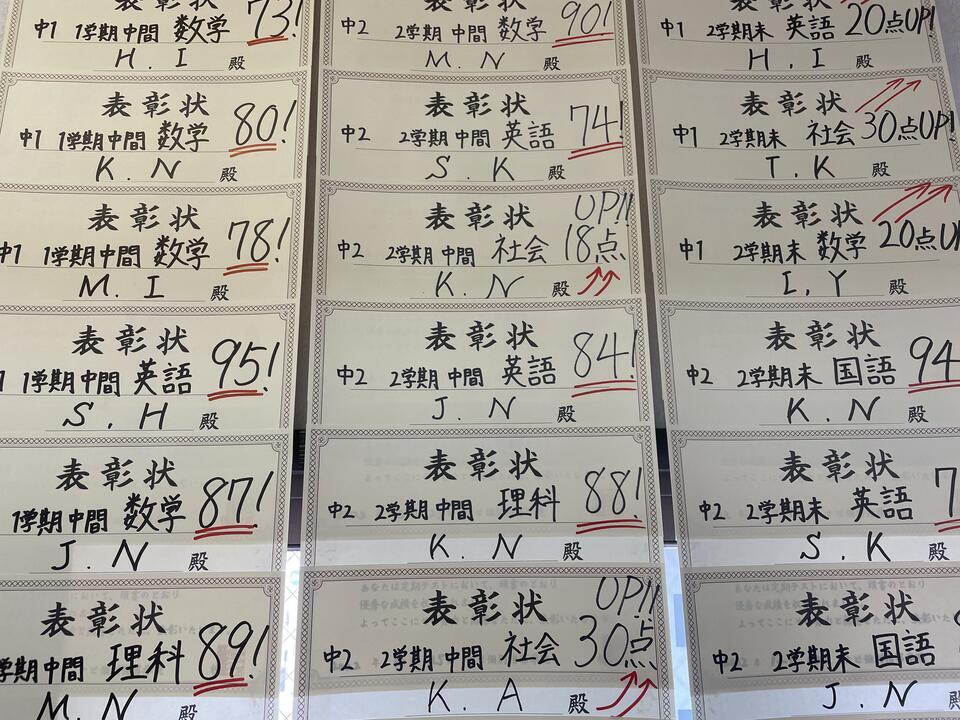 中1 1学期中間 数学 73!
H. I 殿
表彰状
中1 1学期中間 数学 80!
K. N 殿
表彰状
中1 1学期中間 数学 78!
M. I 殿
表彰状
1学期中間 英語 95!
S, H 殿
表彰状
1学期中間 数学 87!
J. N 殿
表彰状
学期中間 理科 89!
M. N 殿
中2 2学期中間 数学 90!
M. N 殿
表彰状
中2 2学期中間 英語 74!
S. K 殿
表彰状 UP!!
中2 2学期中間 社会 18点
K. N 殿
表彰状
中2 2学期中間 英語 84!
J. N 殿
表彰状
中2 2学期中間 理科 88!
K. N 殿
表彰状 UP!!
中2 2学期中間 社会 30点
K. A 殿
中1 2学期末 英語 20点UP!
H, I 殿
表彰状
中1 2学期末 社会 30点UP!
T. K 殿
表彰状
中1 2学期末 数学 20点U
I, Y 殿
表彰状
中2 2学期末 国語 94
K. N 殿
表彰状
中2 2学期末 英語 7
S. K 殿
表彰状
中2 2学期末 国語
J. N 殿